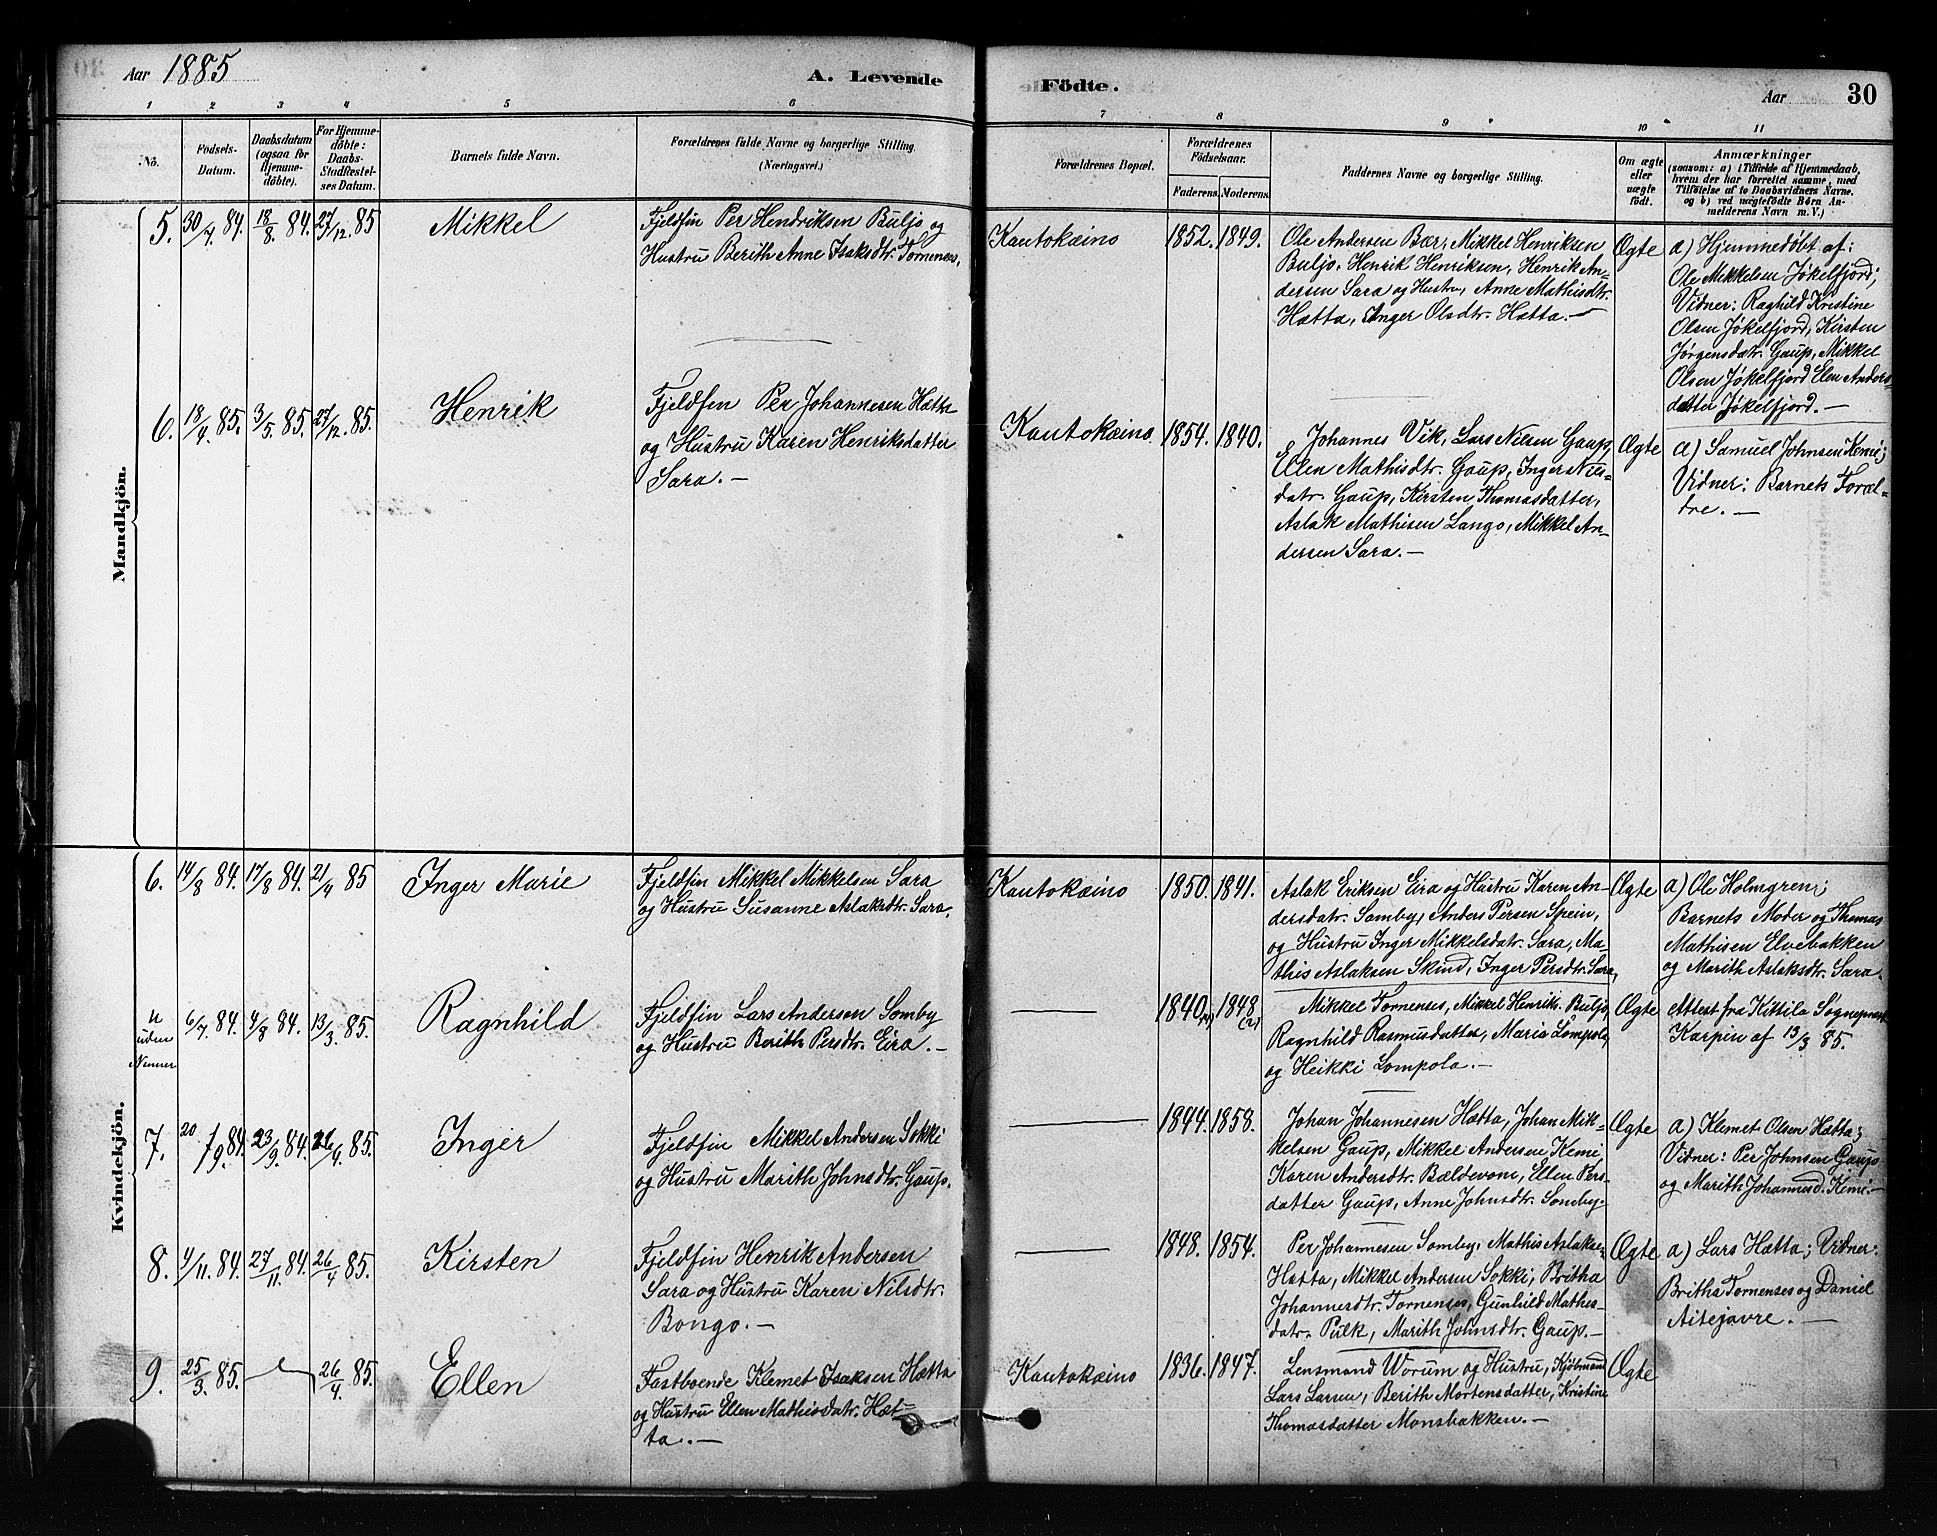 Aar 1885
A. Levende
Födte.
Aar
30
1 2 3 4 5 6 7 8 9 10 11
No.
Födsels-
Datum.
Daabsdatum
(ogsaa for
Hjemme-
döbte).
For Hjemme-
döbte:
Daabs-
Stadfæstel-
ses Datum.
Barnets fulde Navn.
Forældrenes fulde Navne og borgerlige Stilling.
(Næringsvei.)
Forældrenes Bopæl.
Forældrenes
Födselsaar.
Faderens. Moderens.
Faddernes Navne og borgerlige Stilling.
Om ægte
eller
uægte
födt.
Anmærkninger
(saasom: a) i Tilfælde af Hjemmedaab,
hvem der har forrettet samme, med
Tilföielse af to Daabsvidners Navne,
og b) ved uægtefödte Börn An-
melderens Navn m. V.)
Mandkjön.
5. 30/4 84. 18/8. 84. 27/12. 85 Mikkel
Fjeldfin Per Hendriksen Buljo og
Hustru Berith Anne Isaksdtr. Tornensis.
Kautokeino 1852. 1849.
Ole Andersen Bær, Mikkel Henriksen
Buljo, Henrik Henriksen, Henrik An-
dersen Sara og Hustru, Anne Mathisdtr.
Hætta, Inger Olsdtr. Hætta.—
Ægte
a) Hjemmedøbt af:
Ole Mikkelsen Jøkelfjord;
Vidner: Raghild Kristine
Olsen Jøkelfjord, Kirsten
Jørgensdatr. Gaup, Mikkel
Olsen Jøkelfjord Elen Anders-
datter Jøkelfjord.—
6. 18/4 85. 3/5. 85. 27/12. 85. Henrik
Fjeldfin Per Johannesen Hætta
og Hustru Karen Henriksdatter
Sara.—
Kautokeino 1854. 1840.
Johannes Vik, Lars Nilsen Gaup,
Elen Mathisdtr. Gaup, Inger Nils-
datr. Gaup, Kirsten Thomasdatter,
Aslak Mathisen Lango, Mikkel An-
dersen Sara.—
Ægte
a) Samuel Johnsen Kemi;
Vidner: Barnets Foræl-
dre.—
Kvindekjön.
6. 14/8 84. 17/8 84. 21/4 85 Inger Marie
Fjeldfin Mikkel Mikkelsen Sara
og Hustru Susanne Aslaksdtr. Sara.
Kautokeino 1850. 1841.
Aslak Eriksen Eira og Hustru Karen An-
dersdatr. Somby, Anders Persen Spein,
og Hustru Inger Mikkelsdatr. Sara, Ma-
this Aslaksen Skind, Inger Persdtr. Sara,
Ægte
a) Ole Holmgren;
Barnets Moder og Thomas
Mathisen Elvebakken
og Marith Aslaksdtr. Sara.
uden
Nummer
6/7 84. 4/8 84. 13/3 85. Ragnhild
Fjeldfin Lars Andersen Somby
og Hustru Berith Persdtr. Eira.—
— 1840 1848
Mikkel Tornenses, Mikkel Henriks. Buljo,
Ragnhild Rasmusdatter, Maria Lompola,
og Heikki Lompola.—
Ægte
Attest fra Kittila Sognepræst
Karpin af 13/3 85.
7. 20/9. 84. 23/9. 84. 26/4. 85. Inger
Fjeldfin Mikkel Andersen Sokki
og Hustru Marith Johnsdtr. Gaup.
— 1844. 1858.
Johan Johannesen Hætta, Johan Mik-
kelsen Gaup, Mikkel Andersen Kemi,
Karen Andersdtr. Bældevom, Ellen Pers-
datter Gaup, Anne Johnsdtr. Somby.
Ægte
a) Klemet Olsen Hætta;
Vidner: Per Johnsen Gaup
og Marith Johannesd. Kemi.—
8. 4/11. 84. 27/11. 84. 26/4 85. Kirsten
Fjeldfin Henrik Andersen
Sara og Hustru Karen Nilsdtr.
Bongo.—
— 1848. 1854.
Per Johannesen Somby, Mathis Aslaksen
Hætta, Mikkel Andersen Sokki, Britha
Johannesdtr. Tornenses, Gunhild Mathis-
datr. Pulk, Marith Johnsdtr. Gaup.—
Ægte
a) Lars Hætta; Vidner:
Briths Tornenses og Daniel
Aitejavre.—
9. 25/3. 85. — 26/4. 85. Ellen
Fastboende Klemet Isaksen Hætta
og Hustru Ellen Mathisdatr. Hæt-
ta.—
Kautokeino 1836. 1847.
Lensmand Worum og Hustru, Kjøbmand
Lars Larsen, Berith Mortensdatter, Kristine
Thomasdatter Monsbakken.—
Ægte